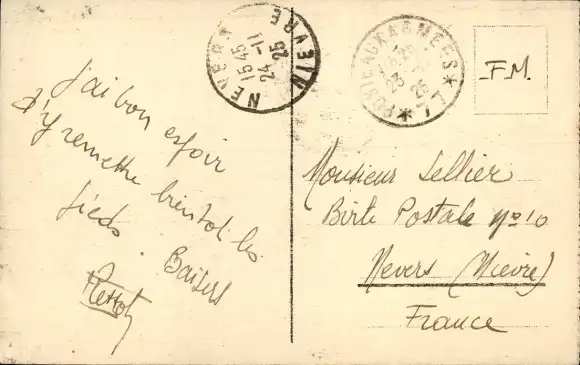 J'ai bon espoir
d'y remettre bientôt les
pieds
Baisers
NEVERS
15 45
24 - 11
25
NIEVRE
POSTE AUX ARMEES
23
25
F.M.
Monsieur Sellier
Boite Postale No 10
Nevers (Nièvre)
France